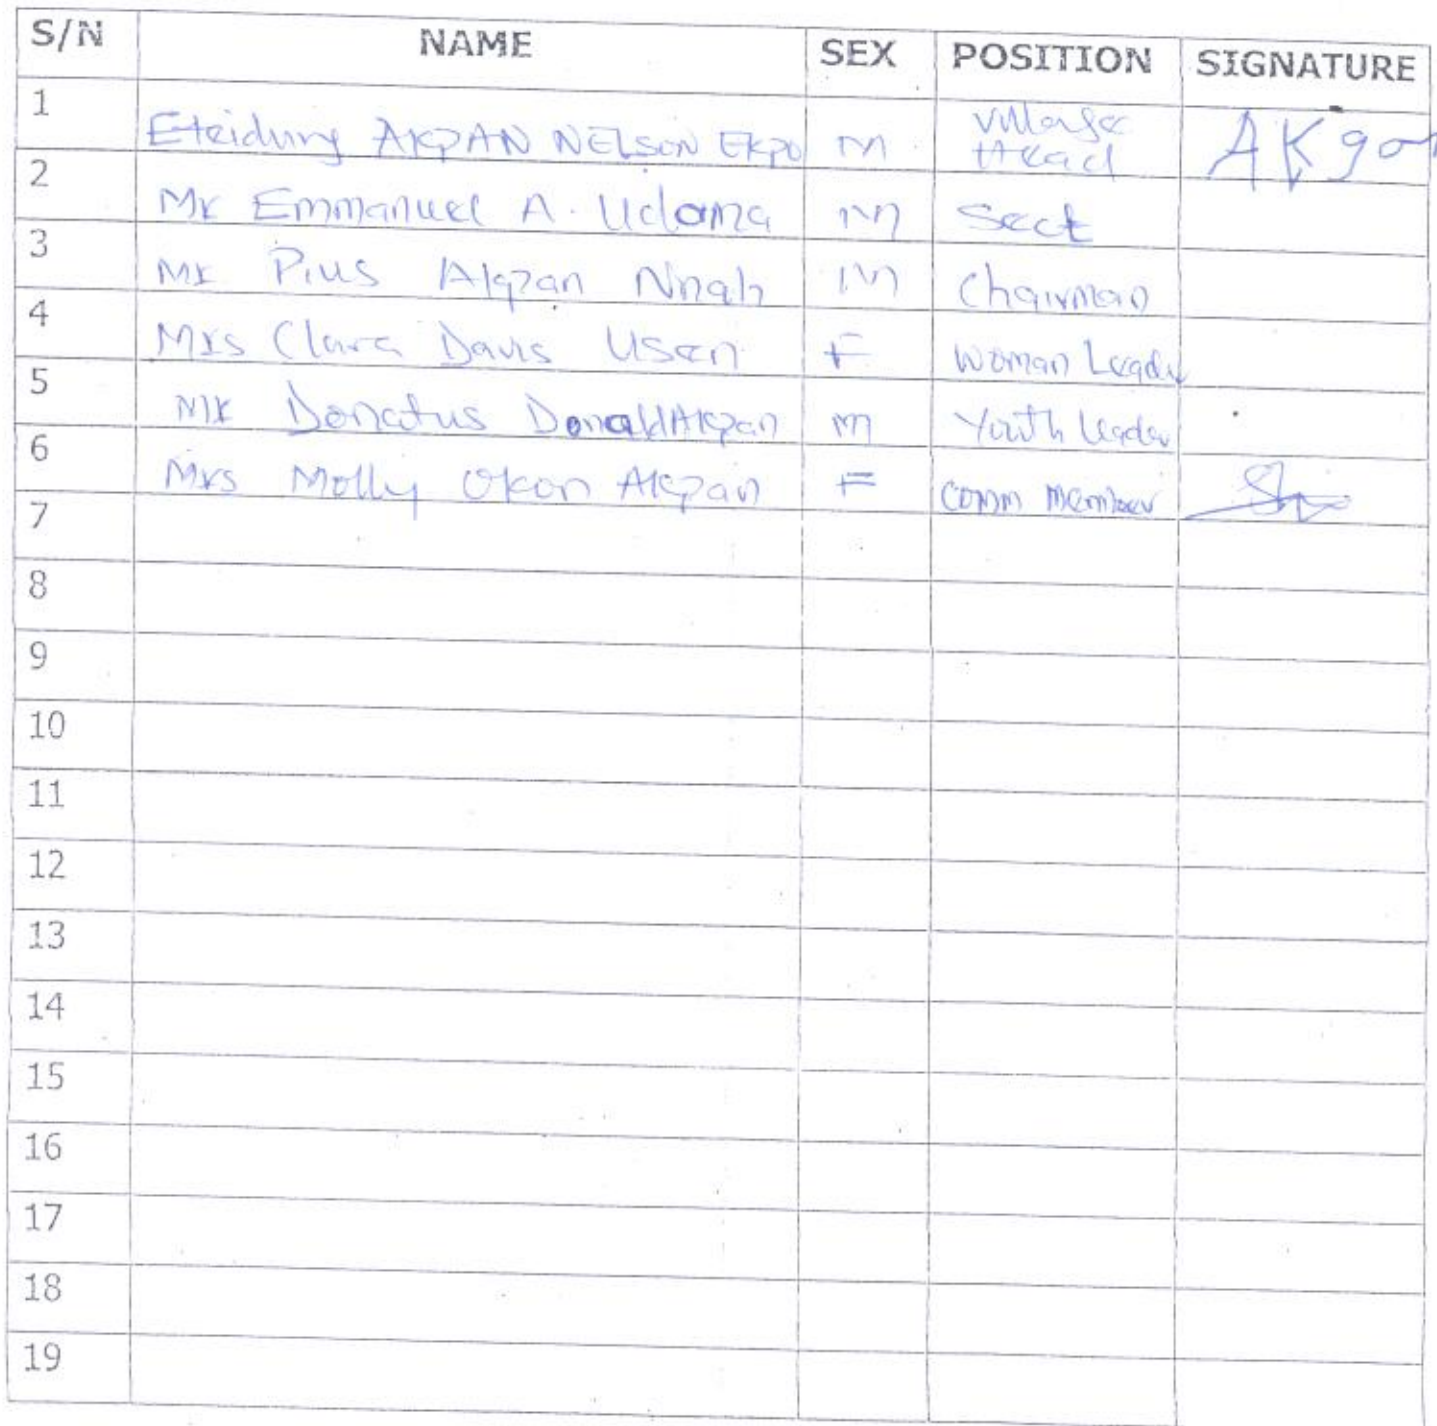 S/N NAME SEX POSITION SIGNATURE
1 Eteidung AKPAN NELSON Ekpo M Village
Head AKpan
2 Mr Emmanuel A. Udoma M Sect
3 Mr Pius Akpan Nnah M Chairman
4 Mrs Clara Davis Usen F Woman Leader
5 Mr Donatus Donald Akpan M Youth Leader
6 Mrs Molly Okon Akpan F Comm Member
7
8
9
10
11
12
13
14
15
16
17
18
19